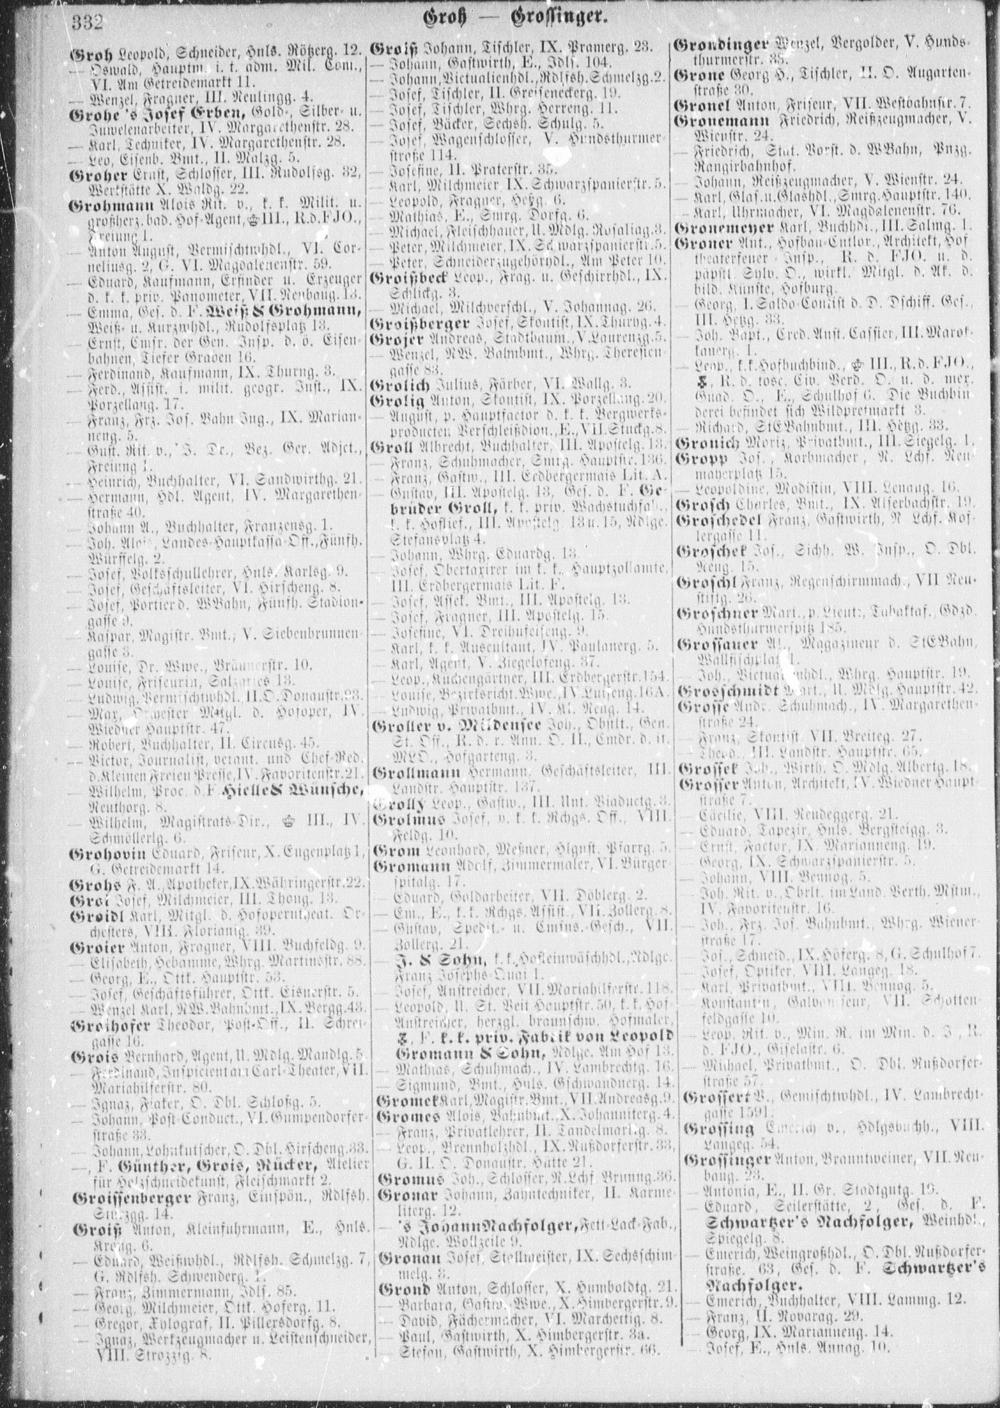 332
Groh — Grossinger.
Groh Leopold, Schneider, Hnls. Rötzerg. 12.
— Oswald, Hauptm. i. t. adm. Mil. Com.,
VI. Am Getreidemarkt 11.
— Wenzel, Fragner, III. Reulingg. 4.
Grohe's Josef Erben, Gold-, Silber- u.
Juwelenarbeiter, IV. Margarethenstr. 28.
— Karl, Techniker, IV. Margarethenstr. 28.
— Leo, Eisenb. Bmt., II. Malzg. 5.
Groher Ernst, Schlosser, III. Rudolfsg. 32,
Werkstätte X. Waldg. 22.
Grohmann Alois Rit. v., k. k. Milit. u.
großherz. bad. Hof-Agent, III., R. d. FJO.,
Freiung 1.
— Anton August, Vermischtwhdl., VI. Cor-
neliusg. 2, G. VI. Magdalenenstr. 59.
— Eduard, Kaufmann, Erfinder u. Erzeuger
d. k. k. priv. Panometer, VII. Neubaug. 13.
— Emma, Ges. d. F. Weiß & Grohmann,
Weiß- u. Kurzwhdl., Rudolfsplatz 13.
— Ernst, Cmsr. der Gen. Insp. d. ö. Eisen-
bahnen, Tiefer Graben 16.
— Ferdinand, Kaufmann, IX. Thurng. 3.
— Ferd., Assist. i. milit. geogr. Inst., IX.
Porzellang. 17.
— Franz, Frz. Jos. Bahn Ing., IX. Marian-
neng. 5.
— Gust. Rit. v., J. Dr., Bez. Ger. Adjct.,
Freiung 1.
— Heinrich, Buchhalter, VI. Sandwirthg. 21.
— Hermann, Hdl. Agent, IV. Margarethen-
straße 40.
— Johann A., Buchhalter, Franzensg. 1.
— Joh. Alois, Landes-Hauptkassa-Off., Fünfh.
Würffelg. 2.
— Josef, Volksschullehrer, Hnls. Karlsg. 9.
— Josef, Geschäftsleiter, VI. Hirscheng. 8.
— Josef, Portier d. WBahn, Fünfh. Stadion-
gasse 9.
— Kaspar, Magistr. Bmt., V. Siebenbrunnen-
gasse 3.
— Louise, Dr. Wwe., Bräunerstr. 10.
— Louise, Friseurin, Salzgries 13.
— Ludwig, Vermischtwhdl., II. O. Donaustr. 23.
— Max, Orchester Mitgl. d. Hofoper, IV.
Wiedner Hauptstr. 47.
— Robert, Buchhalter, II. Circusg. 45.
— Victor, Journalist, verant. und Chef-Red.
d. Kleinen Freien Presse, IV. Favoritenstr. 21.
— Wilhelm, Proc. d. F. Hielle & Wünsche,
Neuthorg. 8.
— Wilhelm, Magistrats-Dir., III., IV.
Schmöllerlg. 6.
Grohovin Eduard, Friseur, X. Eugenplatz 1,
G. Getreidemarkt 14.
Grohs F. A., Apotheker, IX. Währingerstr. 22.
Groi Josef, Milchmeier, III. Thong. 13.
Groidl Karl, Mitgl. d. Hofoperntheat. Or-
chesters, VIII. Florianig. 39.
Groier Anton, Fragner, VIII. Buchfeldg. 9.
— Elisabeth, Hebamme, Whrg. Martinsstr. 88.
— Georg, E., Ottk. Hauptstr. 53.
— Josef, Geschäftsführer, Ottk. Eisnerstr. 5.
— Wenzel Karl, NW. Bahnbmt., IX. Bergg. 43.
Groihofer Theodor, Post-Off., II. Schrei-
gasse 16.
Grois Bernhard, Agent, U. Mdlg. Mandlg. 5.
— Ferdinand, Inspicient am Carl-Theater, VII.
Mariahilferstr. 80.
— Ignaz, Fiaker, O. Dbl. Schloßg. 5.
— Johann, Post-Conduct., VI. Gumpendorfer-
straße 33.
— Johann, Lohnkutscher, O. Dbl. Hirscheng. 33.
—, F. Günther, Grois, Rücker, Atelier
für Holzschneidekunst, Fleischmarkt 2.
Groissenberger Franz, Einspän., Rdlfsh.
Sturzgg. 14.
Groiß Anton, Kleinfuhrmann, E., Hnls.
Krong. 6.
— Eduard, Weißwhdl., Rdlfsh. Schmelzg. 7,
G. Rdlfsh. Schwenderg.
— Franz, Zimmermann, Jdls. 85.
— Georg, Milchmeier, Ottk. Hoferg. 11.
— Gregor, Xylograf, II. Pillersdorfg. 8.
— Ignaz, Werkzeugmacher u. Leistenschneider,
VIII. Strozzig. 8.
Groiß Johann, Tischler, IX. Pramerg. 23.
— Johann, Gastwirth, E., Jdls. 104.
— Johann, Victualienhdl., Rdlfsh. Schmelzg. 2.
— Josef, Tischler, II. Greiseneckerg. 19.
— Josef, Tischler, Whrg. Herreng. 11.
— Josef, Bäcker, Sechsh. Schulg. 5.
— Josef, Wagenschlosser, V. Hundsthurmer-
straße 114.
— Josefine, II. Praterstr. 35.
— Karl, Milchmeier IX. Schwarzspanierstr. 5.
— Leopold, Fragner, Hetzg. 6.
— Mathias, E., Smrg. Dorfg. 6.
— Michael, Fleischhauer, U. Mdlg. Rosaliag. 3.
— Peter, Milchmeier, IX. Schwarzspanierstr. 5.
— Peter, Schneiderzugehörhdl., Am Peter 10.
Groißbeck Leop., Frag. u. Geschirrhdl., IX.
Schlickg. 3.
— Michael, Milchverschl., V. Johannag. 26.
Groißberger Josef, Skontist, IX. Thurng. 4.
Grojer Andreas, Stadtbaum., V. Laurenzg. 5.
— Wenzel, NW. Bahnbmt., Whrg. Theresien-
gasse 83.
Grolich Julius, Färber, VI. Wallg. 3.
Grolig Anton, Skontist, IX. Porzellang. 20.
— August, p. Hauptfactor d. k. k. Bergwerks-
producten Verschleißdion., E., VII. Stuckg. 8.
Groll Albrecht, Buchhalter, III. Apostelg. 13.
— Franz, Schuhmacher, Smrg. Hauptstr. 136.
— Franz, Gastw., III. Erdbergermais Lit. A.
— Gustav, III. Apostelg. 13, Ges. d. F. Ge-
brüder Groll, k. k. priv. Wachstuchfab.,
k. k. Hoflief., III. Apostelg. 13 u. 15, Ndlge.
Stefansplatz 4.
— Johann, Whrg. Eduardg. 13.
— Josef, Obertaxirer im k. k. Hauptzollamte,
III. Erdbergermais Lit. F.
— Josef, Assek. Bmt., III. Apostelg. 13.
— Josef, Fragner, III. Apostelg. 15.
— Josefine, VI. Dreihufeiseng. 9.
— Karl, k. k. Auscultant, IV. Paulanerg. 5.
— Karl, Agent, V. Ziegelofeng. 37.
— Leop., Küchengärtner, III. Erdbergerstr. 154.
— Louise, Bezirksricht. Wwe., IV. Luiseng. 16A.
— Ludwig, Privatbmt., IV. Kl. Neug. 14.
Groller v. Mildensee Joh., Obstlt., Gen.
St. Off., R. d. r. Ann. O. II., Cmdr. d. it.
MLO., Hofgarteng. 3.
Grollmann Hermann, Geschäftsleiter, III.
Landstr. Hauptstr. 137.
Grolly Leop., Gastw., III. Unt. Viaductg. 3.
Grolmus Josef, p. k. k. Rchgs. Off., VIII.
Feldg. 10.
Grom Leonhard, Meßner, Hlgnst. Pfarrg. 5.
Gromann Adolf, Zimmermaler, VI. Bürger-
spitalg. 17.
— Eduard, Goldarbeiter, VII. Döblerg. 2.
— Em., E., k. k. Rchgs. Assist., VII. Zollerg. 8.
— Gustav, Spedit.- u. Cmsns.-Gesch., VII.
Zollerg. 21.
— J. & Sohn, k. k. Hofleinwäschhdl., Ndlge.
Franz Josephs-Quai 1.
— Josef, Anstreicher, VII. Mariahilferstr. 118.
— Leopold, U. St. Veit Hauptstr. 50, k. k. Hof-
Anstreicher, herzgl. braunschw. Hofmaler,
F. k. k. priv. Fabrik von Leopold
Gromann & Sohn, Ndlge. Am Hof 13.
— Mathias, Schuhmach., IV. Lambrechtg. 16.
— Sigmund, Bmt., Hnls. Gschwandnerg. 14.
Gromek Karl, Magistr. Bmt., VII. Andreasg. 9.
Gromes Alois, Bahnbmt., X. Johanniterg. 4.
— Franz, Privatlehrer, II. Tandelmarktg. 8.
— Leop., Brennholzhdl., IX. Nußdorferstr. 33,
G. II. O. Donaustr. Hütte 21.
Gromus Joh., Schlosser, N. Lchf. Brunng. 36.
Gronar Johann, Zahntechniker, II. Karme-
literg. 12.
— 's Johann Nachfolger, Fett-Lack-Fab.,
Ndlge. Wollzeile 9.
Gronau Josef, Stallmeister, IX. Sechsschim-
melg. 3.
Grond Anton, Schlosser, X. Humboldtg. 21.
— Barbara, Gastw. Wwe., X. Himbergerstr. 9.
— David, Fächermacher, VI. Marchettig. 8.
— Paul, Gastwirth, X. Himbergerstr. 3a.
— Stefan, Gastwirth, X. Himbergerstr. 66.
Grondinger Wenzel, Vergolder, V. Hunds-
thurmerstr. 35.
Grone Georg H., Tischler, II. O. Augarten-
straße 30.
Gronel Anton, Friseur, VII. Westbahnstr. 7.
Gronemann Friedrich, Reißzeugmacher, V.
Wienstr. 24.
— Friedrich, Stat. Vorst. d. WBahn, Pnzg.
Rangirbahnhof.
— Johann, Reißzeugmacher, V. Wienstr. 24.
— Karl, Glas. u. Glashdl., Smrg. Hauptstr. 140.
— Karl, Uhrmacher, VI. Magdalenenstr. 76.
Gronemeyer Karl, Buchhdl., III. Salmg. 1.
Groner Ant., Hofbau-Cntlor., Architekt, Hof
theaterfeuer Insp., R. d. FJO. u. d.
päpstl. Sylv. O., wirkl. Mitgl. d. Ak. d.
bild. Künste, Hofburg.
— Georg, I. Saldo-Contist d. D. Dschiff. Ges.,
III. Hetzg. 33.
— Joh. Bapt., Cred. Anst. Cassier, III. Marok-
kanerg. 1.
— Leop., k. k. Hofbuchbind., III., R. d. FJO.,
R. d. tosc. Civ. Verd. O. u. d. mex.
Guad. O., E., Schulhof 6. Die Buchbin-
derei befindet sich Wildpretmarkt 3.
— Richard, StEBahnbmt., III. Hetzg. 33.
Gronich Moriz, Privatbmt., III. Siegelg. 1.
Gropp Jos., Korbmacher, N. Lchf. Neu-
mayerplatz 15.
— Leopoldine, Modistin, VIII. Lenaug. 16.
Grosch Charles, Bmt., IX. Alserbachstr. 19.
Groschedel Franz, Gastwirth, N. Lchf. Kof-
lergasse 11.
Groschek Jos., Sichh. W. Insp., O. Dbl.
Neug. 15.
Groschl Franz, Regenschirmmach., VII. Neu-
stiftg. 26.
Groschner Mart., p. Lieut., Tabaktaf., Gdzd.
Hundsthurmerspitz 185.
Grossauer Al., Magazineur d. StEBahn,
Wallfischplatz 1.
— Joh., Victualhdl., Whrg. Hauptstr. 19.
Grosschmidt Mart., U. Mdlg. Hauptstr. 42.
Grosse Andr., Schuhmach., IV. Margarethen-
straße 24.
— Franz, Skontist, VII. Breiteg. 27.
— Theod., III. Landstr. Hauptstr. 65.
Grossek Joh., Wirth, O. Mdlg. Albertg. 18.
Grosser Anton, Architekt, IV. Wiedner Haupt-
straße 7.
— Cäcilie, VIII. Neudeggerg. 21.
— Eduard, Tapezir., Hnls. Bergsteigg. 3.
— Ernst, Factor, IX. Marianneng. 19.
— Georg, IX. Schwarzspanierstr. 5.
— Johann, VIII. Bennog. 5.
— Joh. Rit. v., Obrlt. im Land. Verth. Mstm.,
IV. Favoritenstr. 16.
— Joh., Frz. Jos. Bahnbmt., Whrg. Wiener-
straße 17.
— Jos., Schneid., IX. Höferg. 8, G. Schulhof 7.
— Josef, Optiker, VIII. Langeg. 18.
— Karl, Privatbmt., VIII. Bennog. 5.
— Konstantin, Galvaniseur, VII. Schotten-
feldgasse 10.
— Leop. Rit. v., Min. R. im Min. d. J., R.
d. FJO., Giselastr. 6.
— Michael, Privatbmt., O. Dbl. Nußdorfer-
straße 57.
Grossert V., Gemischtwhdl., IV. Lambrecht-
gasse 1591.
Grossing Emerich v., Hdlgsbuchh., VIII.
Langeg. 54.
Grossinger Anton, Branntweiner, VII. Neu-
baug. 23.
— Antonia, E., II. Gr. Stadtgutg. 19.
— Eduard, Seilerstätte 2, Ges. d. F.
Schwartzer's Nachfolger, Weinhdl.,
Spiegelg. 8.
— Emerich, Weingroßhdl., O. Dbl. Nußdorfer-
straße. 63, Ges. d. F. Schwartzer's
Nachfolger.
— Emerich, Buchhalter, VIII. Lammg. 12.
— Franz, II. Novarag. 29.
— Georg, IX. Marianneng. 14.
— Josef, E., Hnls. Annag. 10.